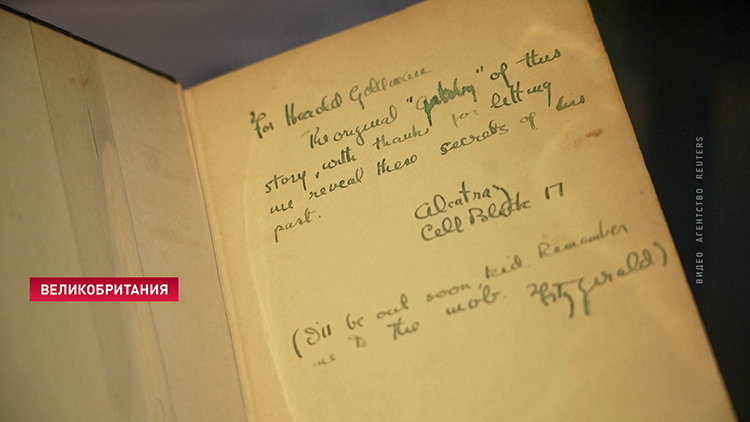 For Harold Goldman
The original "Gatsby" of this
story, with thanks for letting
me reveal these secrets of his
past.
Alcatraz
Cell Block 17
(I'll be out soon, kid. Remember
me to the mob. Fitzgerald)
ВЕЛИКОБРИТАНИЯ
ВИДЕО АГЕНТСТВО REUTERS